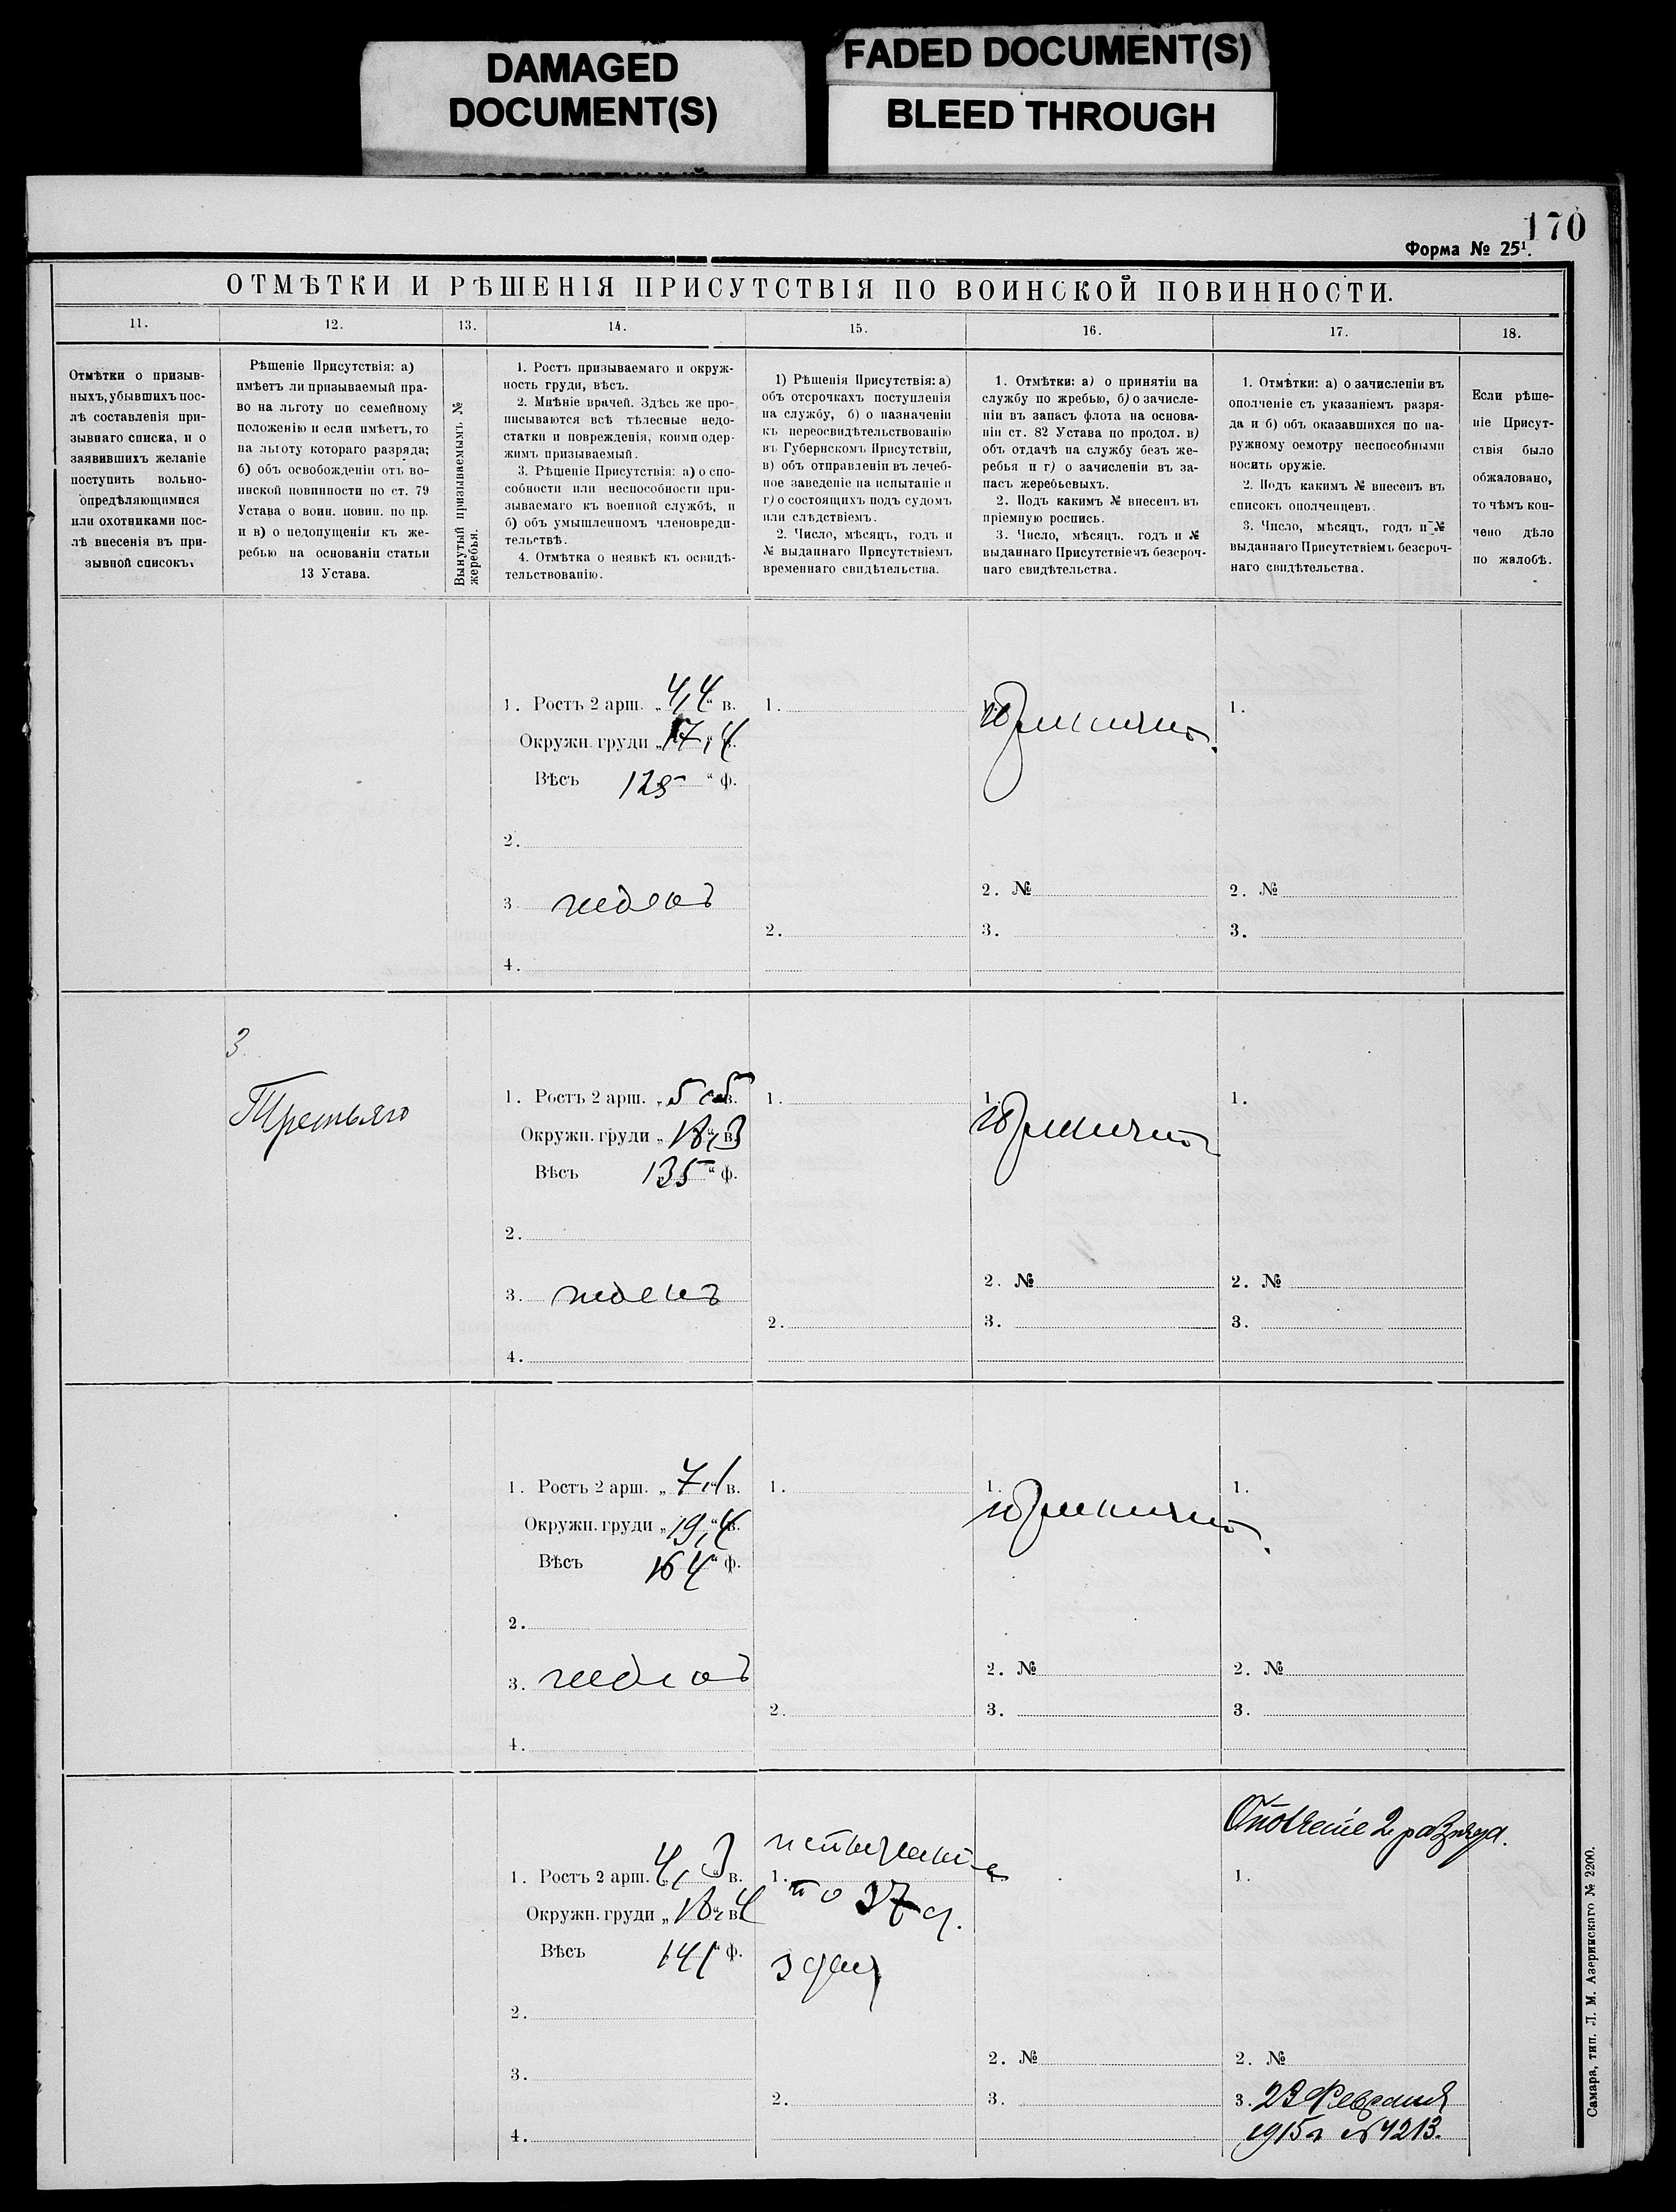 DAMAGED
DOCUMENT(S)
FADED DOCUMENT(S)
BLEED THROUGH
170
Форма № 25¹.
ОТМѢТКИ И РѢШЕНІЯ ПРИСУТСТВІЯ ПО ВОИНСКОЙ ПОВИННОСТИ.
11. 12. 13. 14. 15. 16. 17. 18.
Отмѣтки о призыв-
ныхъ, убывшихъ пос-
лѣ составленія при-
зывнаго списка, и о
заявившихъ желаніе
поступить вольно-
опредѣляющимися
или охотниками пос-
лѣ внесенія въ при-
зывной списокъ.
Рѣшеніе Присутствія: а)
имѣетъ ли призываемый пра-
во на льготу по семейному
положенію и если имѣетъ, то
на льготу котораго разряда;
б) объ освобожденіи отъ во-
инской повинности по ст. 79
Устава о воин. повин. по пр.
и в) о недопущеніи къ же-
ребью на основаніи статьи
13 Устава.
Вынутый призываемымъ №
жеребья.
1. Ростъ призываемаго и окруж-
ность груди, вѣсъ.
2. Мнѣніе врачей. Здѣсь же про-
писываются всѣ тѣлесные недо-
статки и поврежденія, коими одер-
жимъ призываемый.
3. Рѣшеніе Присутствія: а) о спо-
собности или неспособности при-
зываемаго къ военной службѣ, и
б) объ умышленномъ членовреди-
тельствѣ.
4. Отмѣтка о неявкѣ къ освидѣ-
тельствованію.
1) Рѣшенія Присутствія: а)
объ отсрочкахъ поступленія
на службу, б) о назначеніи
къ переосвидѣтельствованію
въ Губернскомъ Присутствіи,
в) объ отправленіи въ лечеб-
ное заведеніе на испытаніе и
г) о состоящихъ подъ судомъ
или слѣдствіемъ.
2. Число, мѣсяцъ, годъ и
№ выданнаго Присутствіемъ
временнаго свидѣтельства.
1. Отмѣтки: а) о принятіи на
службу по жребью, б) о зачисле-
ніи въ запасъ флота на основа-
ніи ст. 82 Устава по продол. в)
объ отдачѣ на службу безъ же-
ребья и г) о зачисленіи въ за-
пасъ жеребьевыхъ.
2. Подъ какимъ № внесенъ въ
пріемную роспись.
3. Число, мѣсяцъ, годъ и №
выданнаго Присутствіемъ безсроч-
наго свидѣтельства.
1. Отмѣтки: а) о зачисленіи въ
ополченіе съ указаніемъ разря-
да и б) объ оказавшихся по на-
ружному осмотру неспособными
носить оружіе.
2. Подъ какимъ № внесенъ въ
списокъ ополченцевъ.
3. Число, мѣсяцъ, годъ и №
выданнаго Присутствіемъ безсроч-
наго свидѣтельства.
Если рѣше-
ніе Присут-
ствія было
обжаловано,
то чѣмъ кон-
чено дѣло
по жалобѣ.
1. Ростъ 2 арш. „ 4,4 " в. 1. 1.
Окружн. груди „ 17,4 в.
Вѣсъ 125 " ф.
2.
2. № 2. №
3. годенъ
2. 3. 3.
4.
3
Третьяго
1. Ростъ 2 арш. „ 5 в. 1. 1. 1.
Окружн. груди „ 18,3 в.
Вѣсъ 135 " ф.
2.
2. № 2. №
3. годенъ
2. 3. 3.
4.
1. Ростъ 2 арш. „ 7,1 в. 1. 1. 1.
Окружн. груди „ 19,4 в.
Вѣсъ 164 " ф.
2.
2. № 2. №
3. годенъ
2. 3. 3.
4.
Ополченіе 2 разряда.
1. Ростъ 2 арш. 4,3 в. 1. 1.
по 37 ст.
Окружн. груди „ 18,4 в.
Вѣсъ 141 " ф.
2.
2. № 2. №
3.
2. 3. 3. 23 Февраля
1915 г. № 4213.
4.
Самара, тип. Л. М. Азеринскаго № 2200.